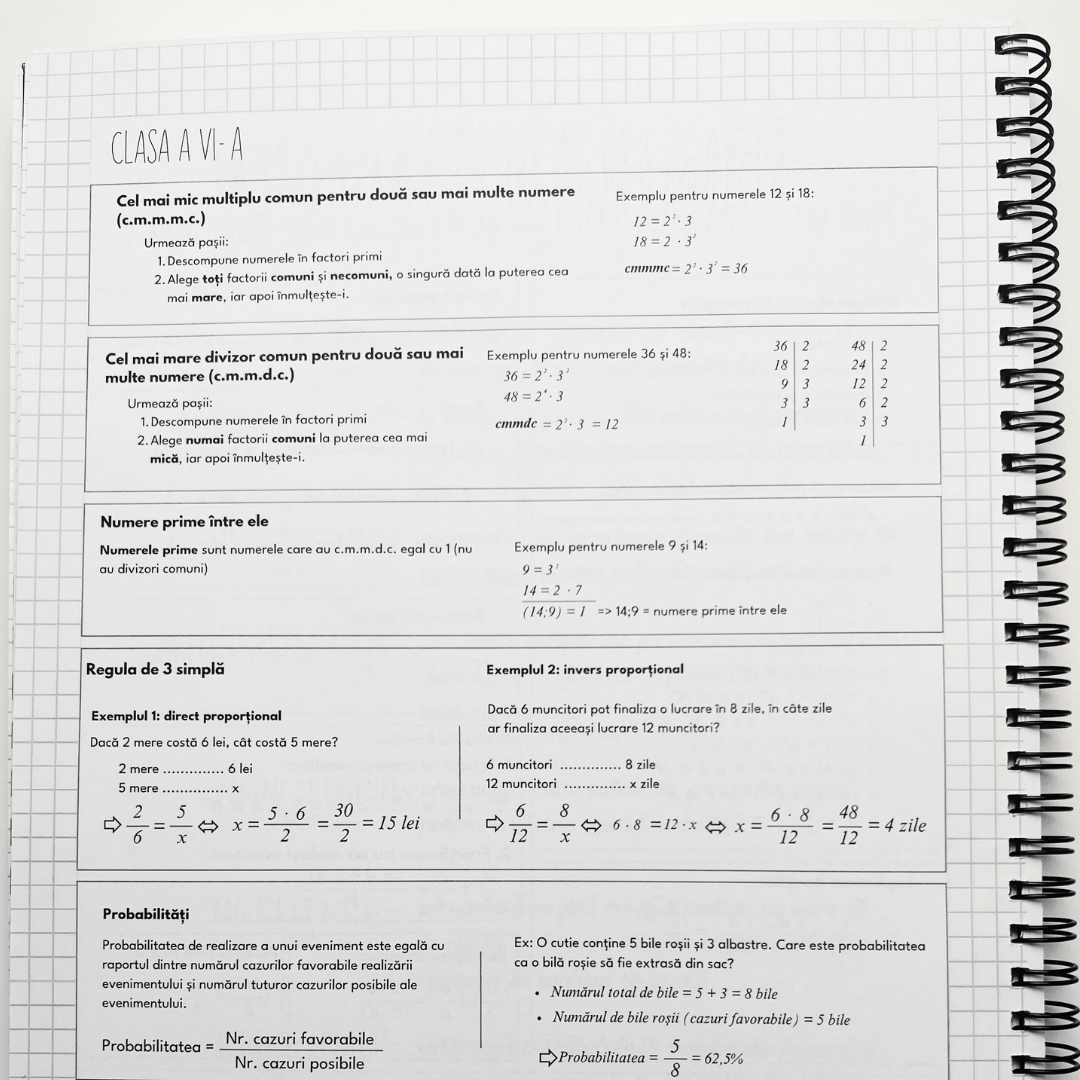 CLASA A VI-A
Cel mai mic multiplu comun pentru două sau mai multe numere
(c.m.m.m.c.)
Urmează pașii:
1. Descompune numerele în factori primi
2. Alege toți factorii comuni și necomuni, o singură dată la puterea cea
mai mare, iar apoi înmulțește-i.
Exemplu pentru numerele 12 și 18:
12 = 2² · 3
18 = 2 · 3²
cmmmc = 2² · 3² = 36
Cel mai mare divizor comun pentru două sau mai
multe numere (c.m.m.d.c.)
Urmează pașii:
1. Descompune numerele în factori primi
2. Alege numai factorii comuni la puterea cea mai
mică, iar apoi înmulțește-i.
Exemplu pentru numerele 36 și 48:
36 = 2² · 3²
48 = 2⁴ · 3
cmmdc = 2² · 3 = 12
36 | 2
18 | 2
9 | 3
3 | 3
1 |
48 | 2
24 | 2
12 | 2
6 | 2
3 | 3
1 |
Numere prime între ele
Numerele prime sunt numerele care au c.m.m.d.c. egal cu 1 (nu
au divizori comuni)
Exemplu pentru numerele 9 și 14:
9 = 3²
14 = 2 · 7
(14;9) = 1 => 14;9 = numere prime între ele
Regula de 3 simplă
Exemplul 1: direct proporțional
Dacă 2 mere costă 6 lei, cât costă 5 mere?
2 mere ............. 6 lei
5 mere .............. x
⇨ 2/6 = 5/x ⇔ x = 5 · 6/2 = 30/2 = 15 lei
Exemplul 2: invers proporțional
Dacă 6 muncitori pot finaliza o lucrare în 8 zile, în câte zile
ar finaliza aceeași lucrare 12 muncitori?
6 muncitori ............. 8 zile
12 muncitori ............. x zile
⇨ 6/12 = 8/x ⇔ 6 · 8 = 12 · x ⇔ x = 6 · 8/12 = 48/12 = 4 zile
Probabilități
Probabilitatea de realizare a unui eveniment este egală cu
raportul dintre numărul cazurilor favorabile realizării
evenimentului și numărul tuturor cazurilor posibile ale
evenimentului.
Probabilitatea = Nr. cazuri favorabile / Nr. cazuri posibile
Ex: O cutie conține 5 bile roșii și 3 albastre. Care este probabilitatea
ca o bilă roșie să fie extrasă din sac?
• Numărul total de bile = 5 + 3 = 8 bile
• Numărul de bile roșii (cazuri favorabile) = 5 bile
⇨ Probabilitatea = 5/8 = 62,5%